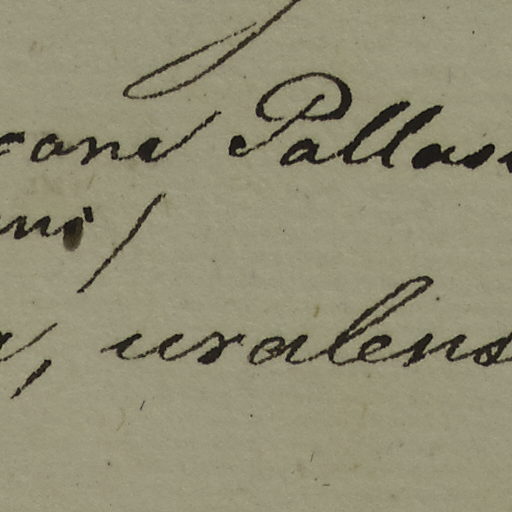 cane Pallas
ni/
, uralens